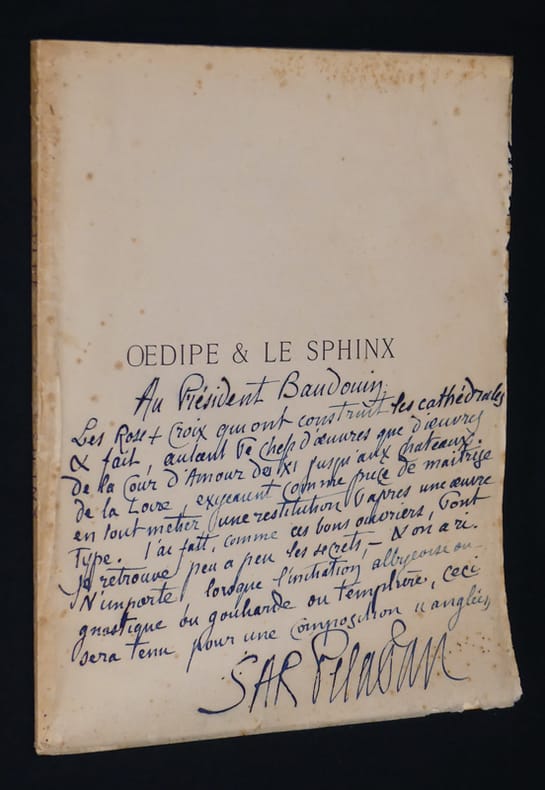 ŒDIPE & LE SPHINX
Au Président Baudouin
Les Rose + Croix qui ont construit les cathédrales
& fait, autant de chefs d'œuvres que d'œuvres
de la Cour d'Amour du XI jusqu'aux chateaux
de la Loire, exigeaient comme pièce de maitrise
en tout métier une restitution d'apres une œuvre
Type. J'ai fait, comme ces bons ouvriers, dont
je retrouve peu a peu les secrets, –
N'importe lorsque l'initiation albigeoise ou
gnostique ou ou templière, ceci
sera tenu pour une composition
SAR Peladan